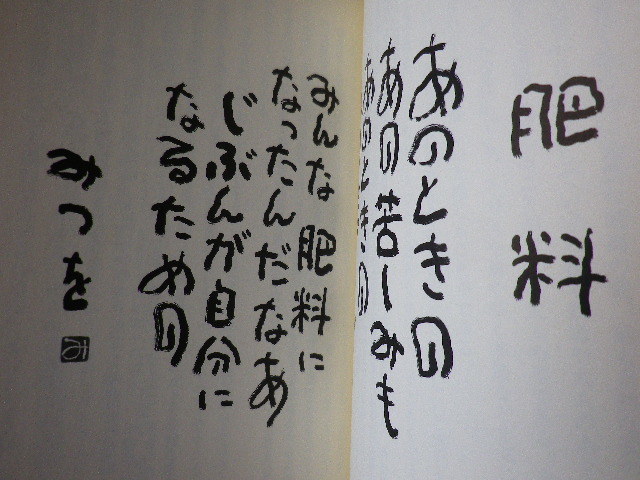 肥料
あのときの
あの苦しみも
あのときの
みんな肥料に
なったんだなあ
じぶんが自分に
なるための
みつを
み